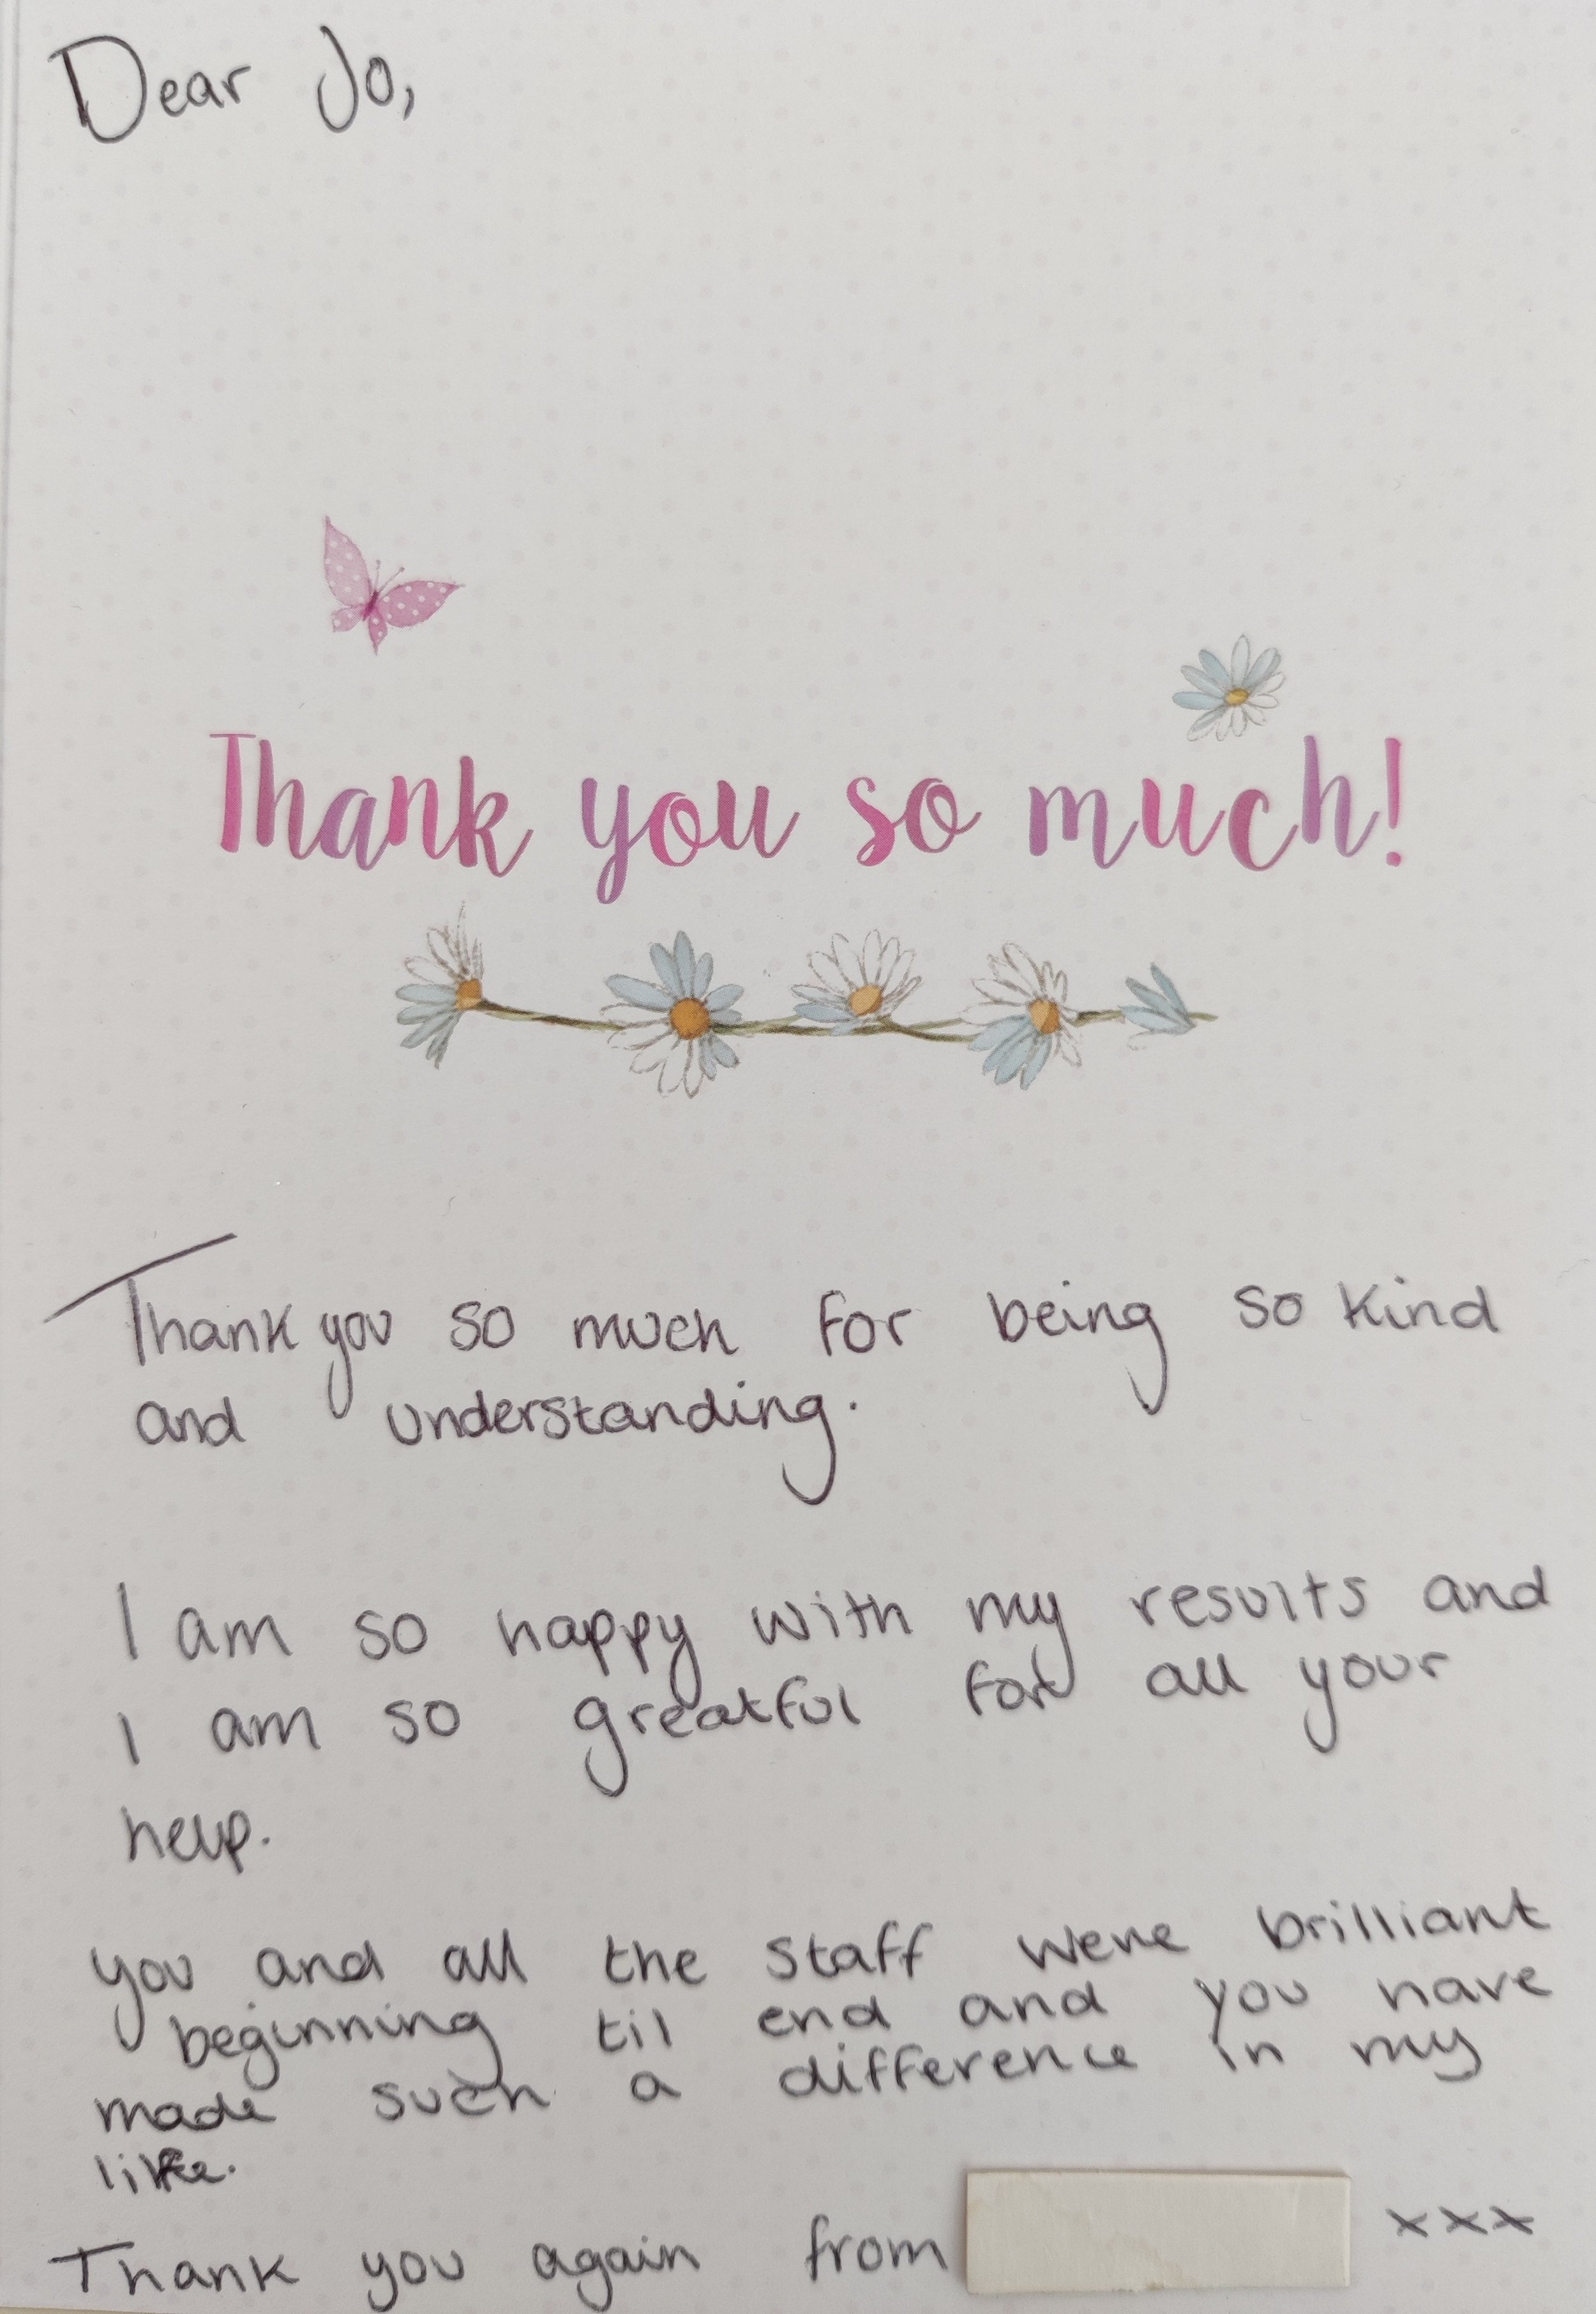 Dear Jo,
Thank you so much!
Thank you so much for being so kind
and understanding.
I am so happy with my results and
I am so greatful for all your
help.
you and all the staff were brilliant
beginning til end and you have
made such a difference in my
life.
Thank you again from xxx